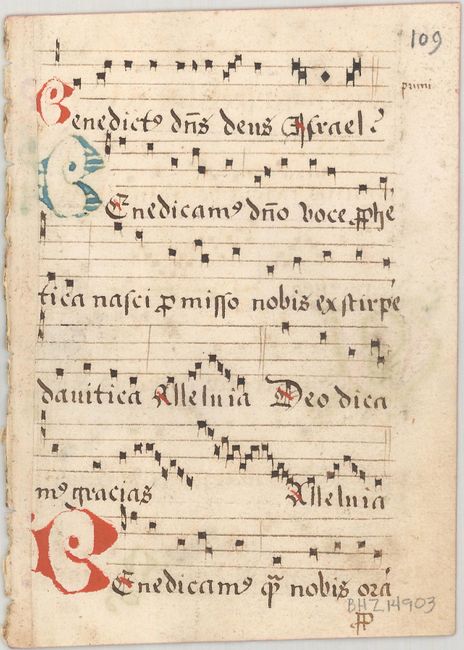 109
pruni
Benedict⁹ dñs deus Israel
BEnedicam⁹ dño voce ꝓphe
tica nasci ꝓmisso nobis ex stirpe
davitica Alleluia Deo dica
m⁹ gracias Alleluia
BEnedicam⁹ nobis ora
BHZ14903